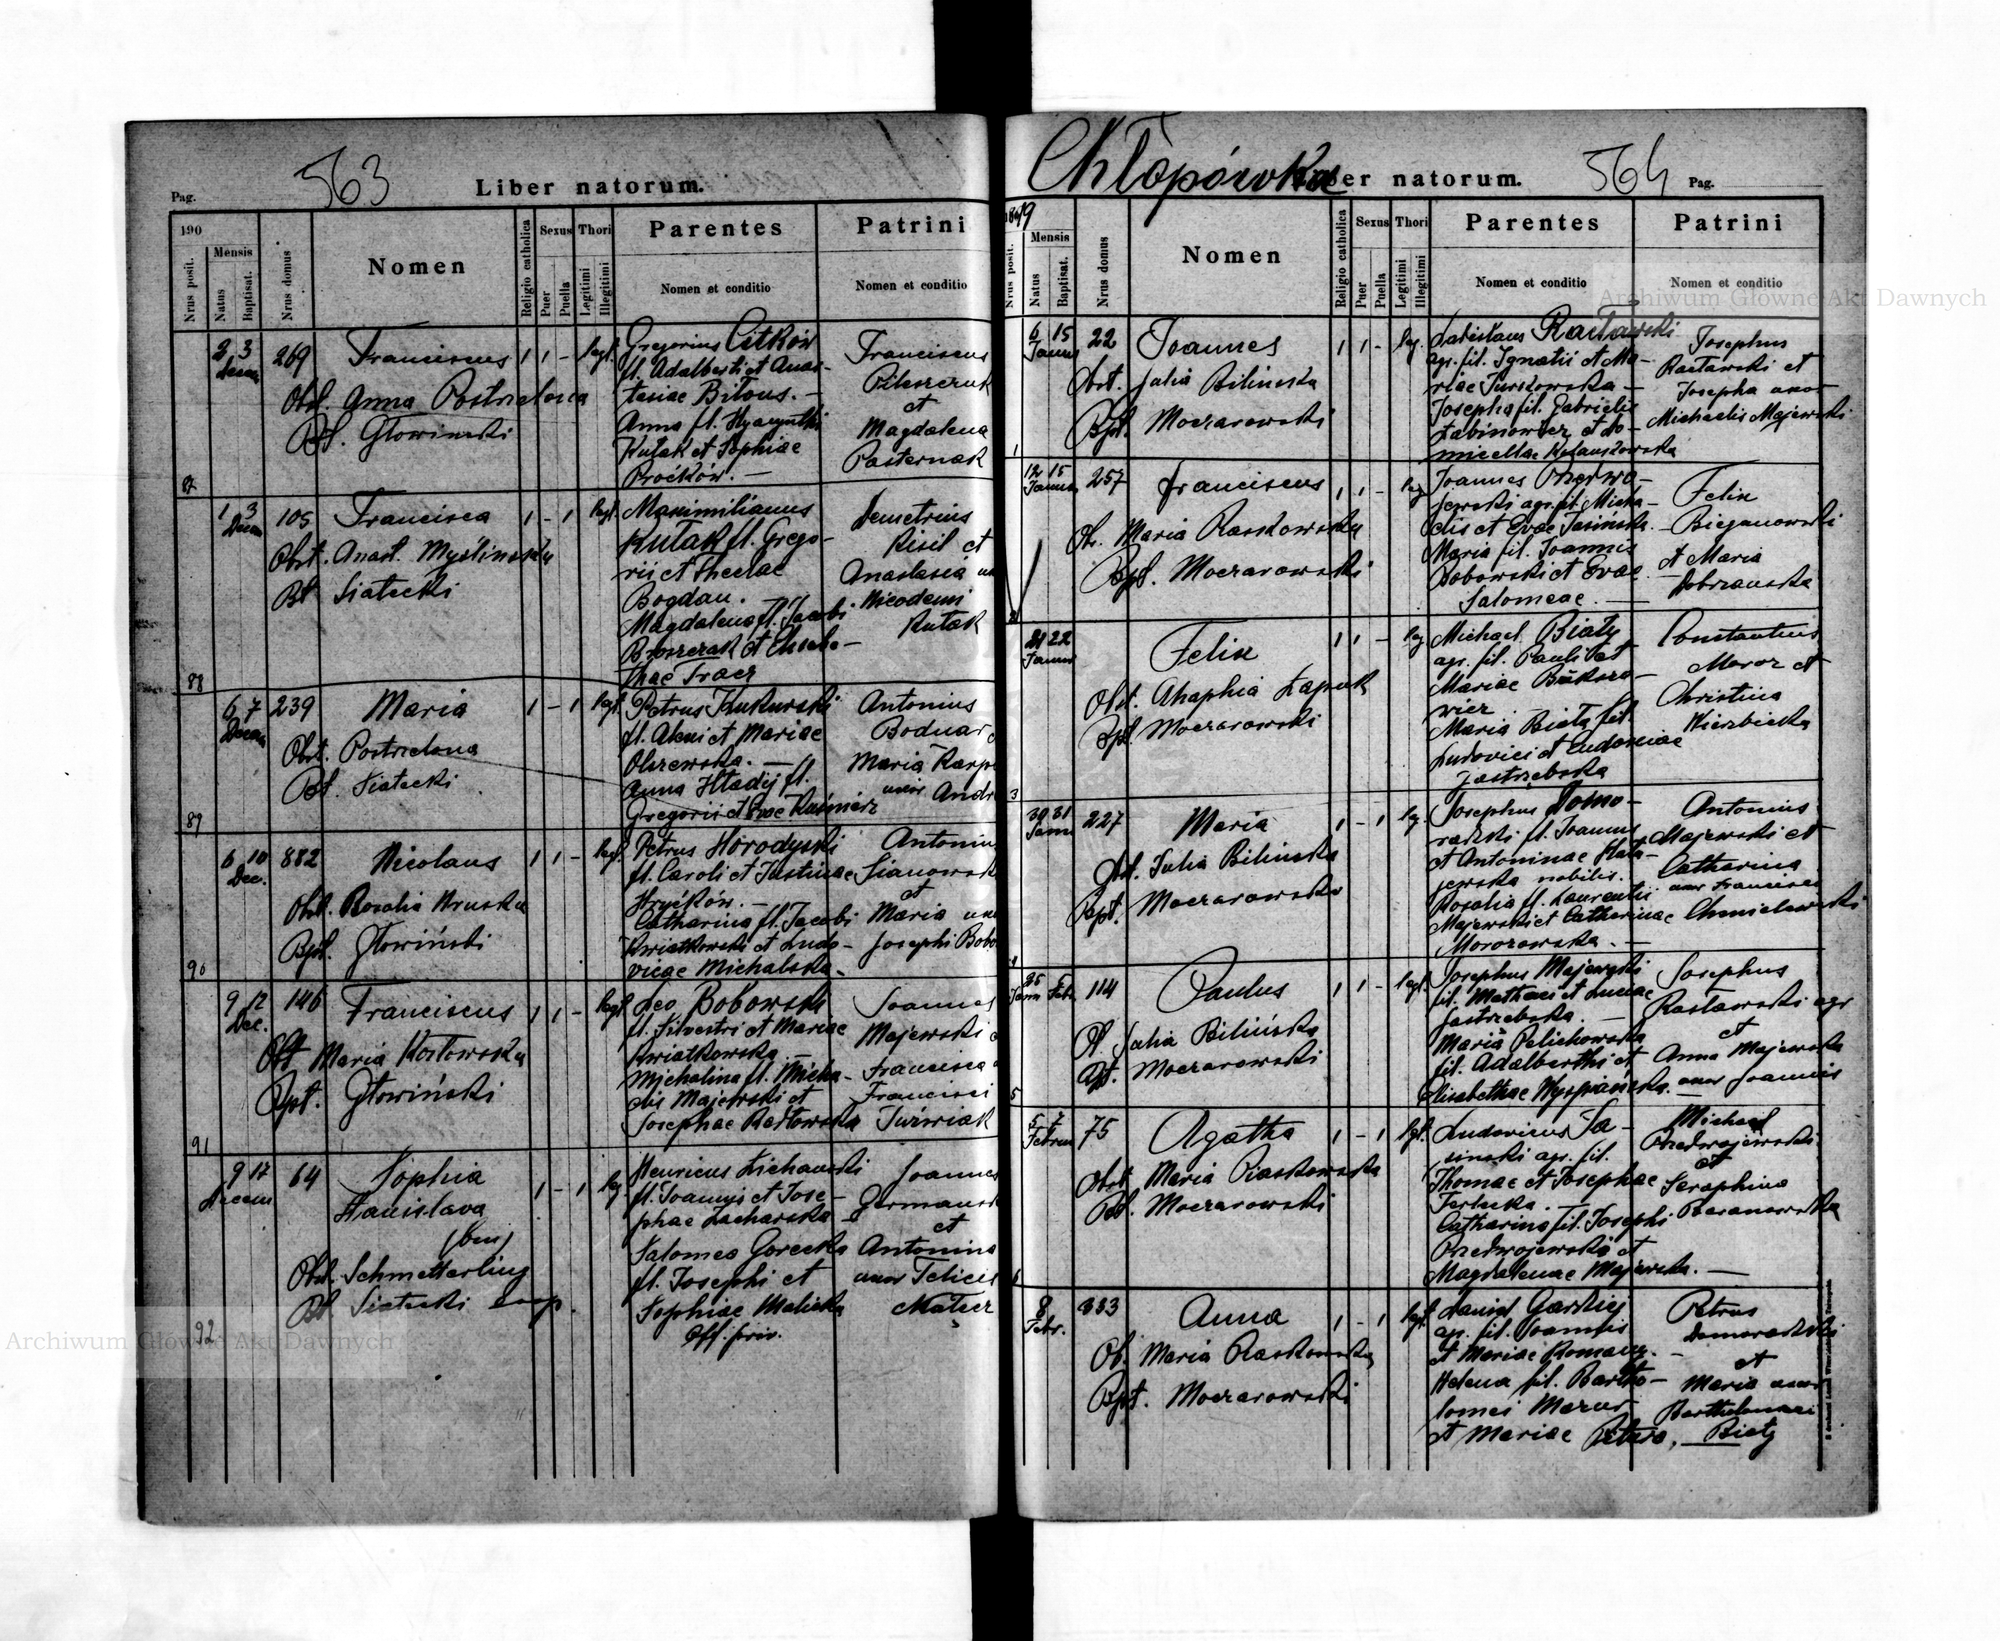 563
Pag.
Liber natorum.
190
Nrus posit.
Mensis
Natus
Baptisat.
Nrus domus
Nomen
Religio catholica
Sexus
Puer
Puella
Thori
Legitimi
Illegitimi
Parentes
Nomen et conditio
Patrini
Nomen et conditio
87
2 3
Decem
269
Franciscus
1 1 - legt.
Obst. Anna Postrelona
Bt. Głowiński
Gregorius Citków
fl. Adalberti et Anas-
tasiae Bitous. -
Anna fl. Hyacynthi
Kutak et Sophiae
Proćków. -
Franciscus
et
Magdalena
Pasternak
88
1 3
Decem
105
Francisca
1 - 1 legt.
Obst. Anast. Myslinska
Bt. Siatecki
Maximilianus
Kutak fl. Grego-
rii et Theclae
Bogdan. -
Magdalena fl. Jacobi
thae Tracz
Demetrius
Kisil et
Anastasia
Nicodemi
Kutak
89
6 7
Decem
239
Maria
1 - 1 legt.
Obst. Postrelona
Bt. Siatecki
Petrus Kukurski
et Mariae
Olszewska. -
Anna Hładij fl.
Gregorii et Evae Kaźmierz
Antonius
Bodnar
Maria Karp
uxor Andr
90
6 10
Dec.
882
Nicolaus
1 1 - legt.
Obst. Rosalia Hruska
Bpt. Głowiński
Petrus Horodyski
fl. Caroli et Justinae
Hryćków. -
Catharina fl. Jacobi
Kwiatkowski et Ludo-
vicae Michalska. -
Antonius
Sianowsk
et
Maria
Josephi Bobo
91
9 12
Dec.
146
Franciscus
1 1 - legt.
Obst Maria Kozłowska
Bpt. Głowiński
Leo Bobowski
fl. Silvestri et Mariae
Kwiatkowska. -
Michalina fl. Micha-
elis Majewski et
Josephae Raztowska
Joannes
Majewski
Francisca
Francisci
Juźwiak
92
9 17
Decem
64
Sophia
Stanislava
(bin)
1 - 1 leg.
Obst. Schmetterling
Bt. Siatecki
fl. Joannis et Jose-
phae Zacharska -
Salomea Gorecka
fl. Josephi et
Sophiae Malicka
Off. priv.
Joannes
Germansk
et
Antonina
uxor Felicis
Chłopówka
Liber natorum.
564
Pag.
1909
Nrus posit.
Mensis
Natus
Baptisat.
Nrus domus
Nomen
Religio catholica
Sexus
Puer
Puella
Thori
Legitimi
Illegitimi
Parentes
Nomen et conditio
Patrini
Nomen et conditio
1
6 15
Januar
22
Joannes
1 1 - leg.
Obst. Julia Bilinska
Bpt. Moczarowski
Ladislaus Raztawski
agr. fil. Ignatii et Ma-
riae Turkowska -
Josepha fil. Gabrielis
Łabinowicz et Do-
micellae
Josephus
Raztawski et
Josepha uxor
Michaelis Majewski
2
12 15
Januar
257
Franciscus
1 1 - leg
Ob. Maria Raskowska
Bpt. Moczarowski
Joannes Przedwo-
jewski agr. fil. Micha-
elis et Evae Jasinska. -
Maria fil. Joannis
Bobowski et Evae
Salomeae. -
Felix
Bieganowski
et Maria
Dobrzanska
3
21 22
Januar
Felix
1 1 - leg
Obst. Ahaphia Łapuk
Bpt. Moczarowski
Michael Biały
agr. fil. Pauli et
Mariae
Maria Biały fil.
Ludovici et Ludovicae
Jastrzebska
Constantinus
Moroz et
Christina
Wierzbicka
4
30 31
Janu
227
Maria
1 - 1 leg.
Obst. Julia Bilińska
Bpt. Moczarowski
Josephus Domo-
radzki fl. Joannis
et Antoninae
jewska nobilis. -
Rosalia fl. Laurentii
Majewski et Catharinae
Morozowska. -
Antonius
Majewski et
Catharina
uxor Francisci
Chmielewski
5
25
Jann Feb.
114
Paulus
1 1 - legt.
Ob Julia Bilińska
Bpt. Moczarowski
Josephus Majewski
fil. Mathaei et Luciae
Jastrzebska. -
Maria Pelichowska
fil. Adalberthi et
Elisabethae Wyspiańska. -
Josephus
Raztawski agr
et
Anna Majewska
uxor Joannis
6
5 7
Februar
75
Agatha
1 - 1 legt.
Obst. Maria Piaskowska
Bt. Moczarowski
Ludovicus Ja-
sinski agr. fil.
Thomae et Josephae
Terlecka. -
Catharina fil. Josephi
Przedwojewski et
Magdalenae Majewska. -
Michael
Przedwojewski
et
Seraphina
Baranowska
8
Febr.
333
Anna
1 - 1 legt.
Ob. Maria Raskowska
Bpt. Moczarowski
Daniel Garskij
agr. fil. Joannis
et Mariae Romany. -
Helena fil. Bartho-
lomei Mazur
et Mariae Petera. -
Petrus
Domaradzki
et
Maria uxor
Bartholomaei
Biały
Archiwum Główne Akt Dawnych
Archiwum Główne Akt Dawnych